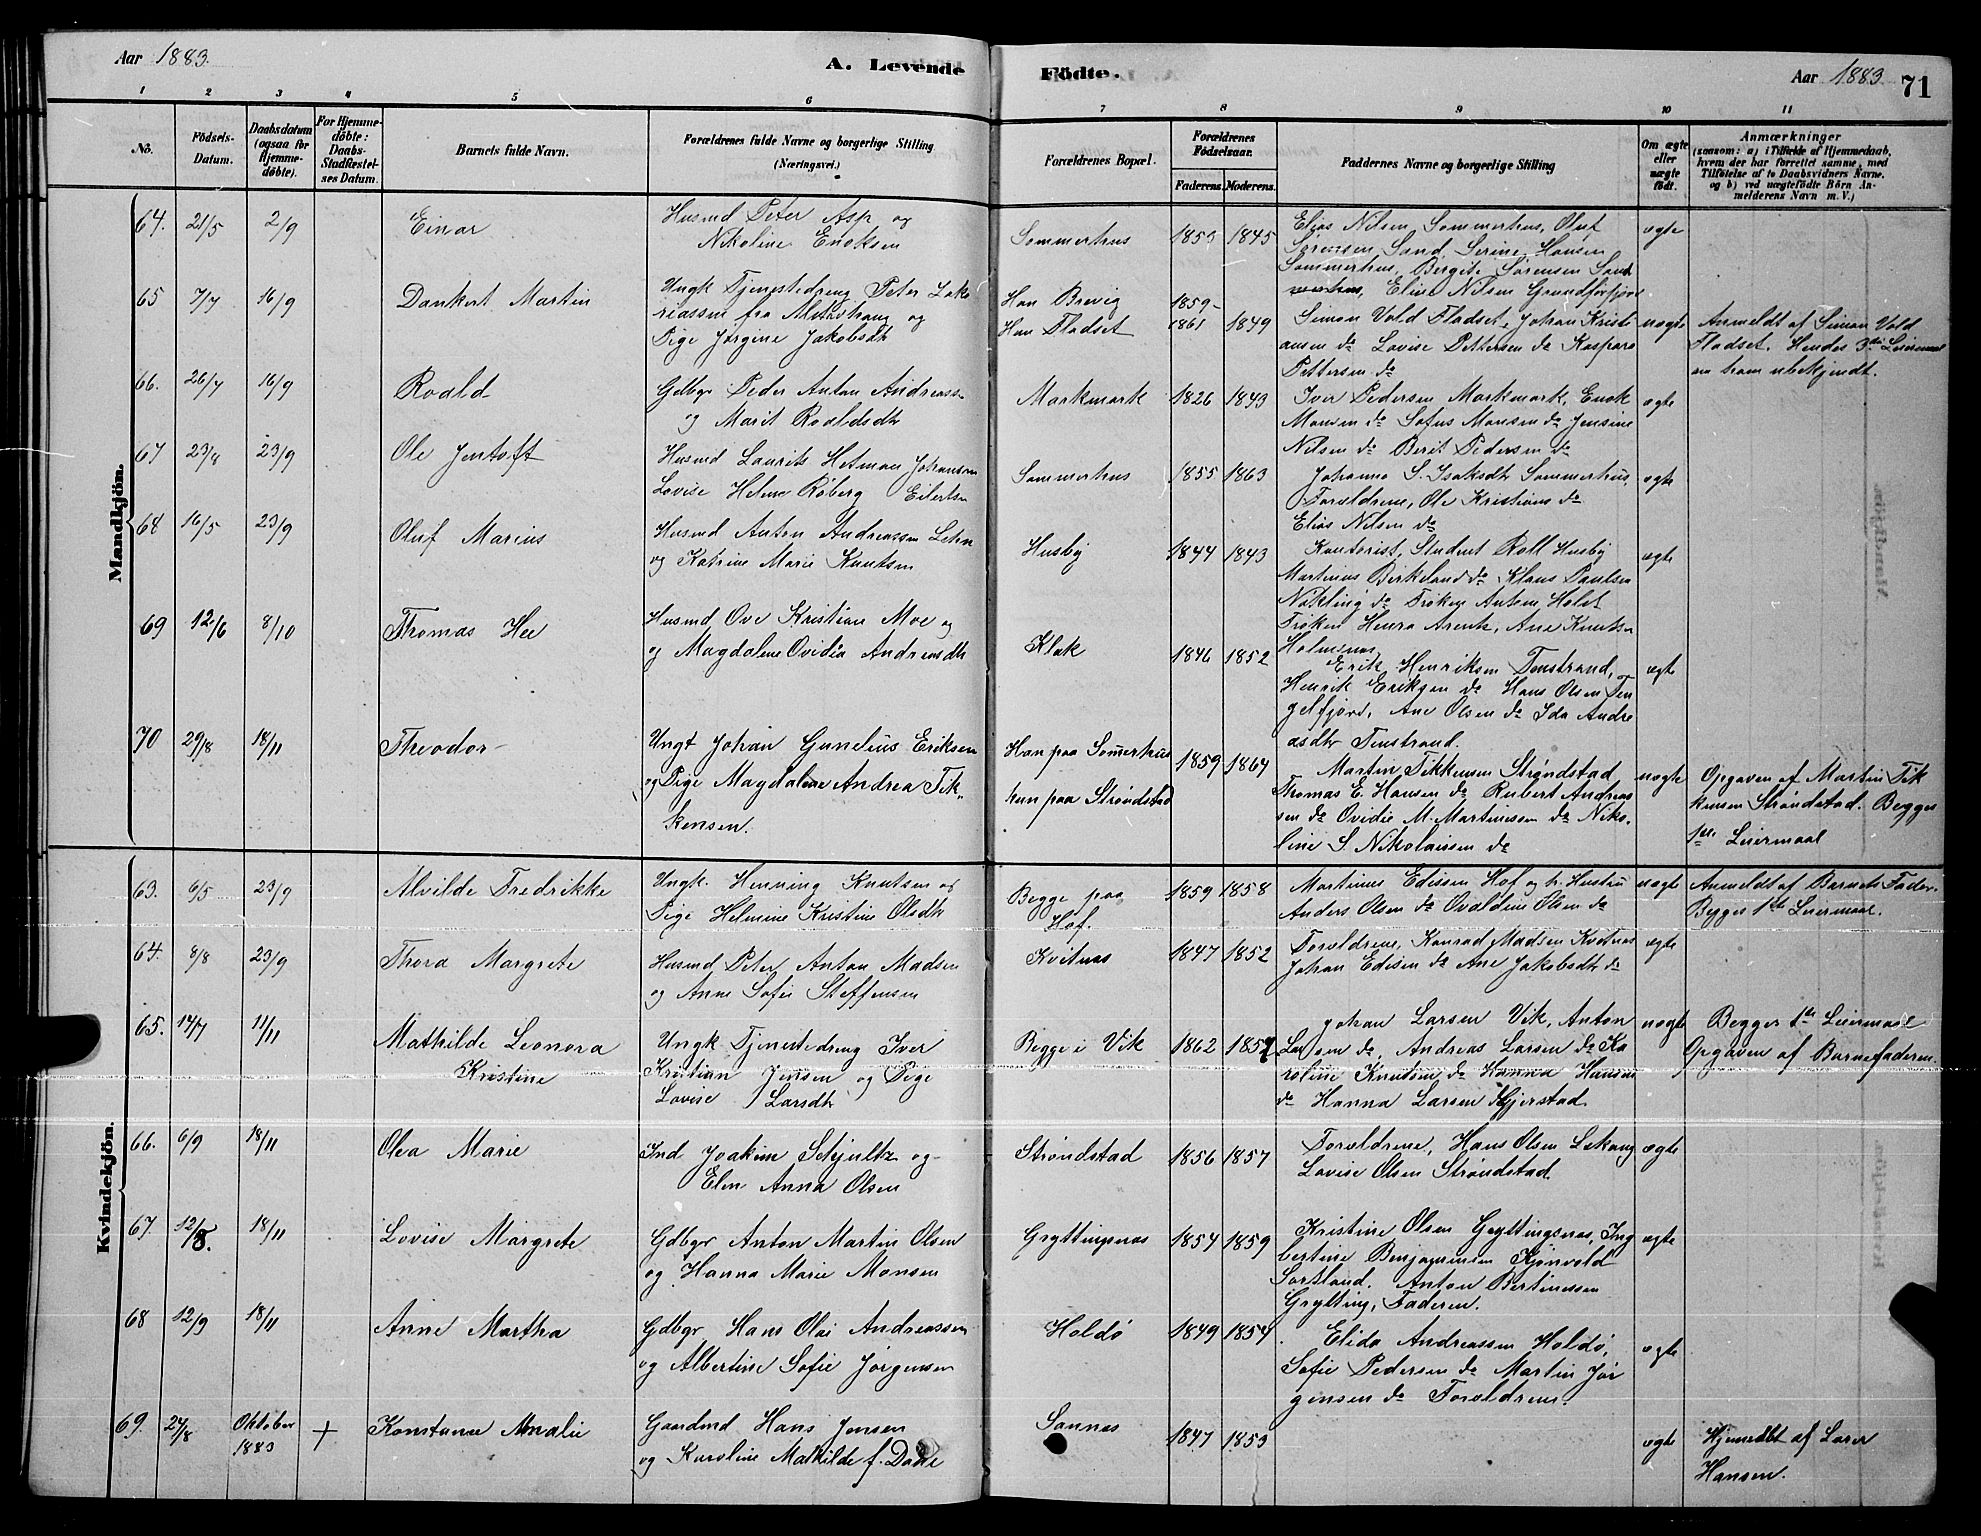 Aar 1883.
A. Levende
Födte.
Aar 1883.
71
1 2 3 4 5 6 7 8 9 10 11
No.
Fødsels-Datum.
Daabsdatum (ogsaa for Hjemme-døbte).
For Hjemme-døbte: Daabs-Stadfæstel-ses Datum.
Barnets fulde Navn.
Forældrenes fulde Navne og borgerlige Stilling (Næringsvei.)
Forældrenes Bopæl.
Forældrenes Födselsaar.
Faderens. Moderens.
Faddernes Navne og borgerlige Stilling
Om ægte eller uægte født.
Anmærkninger
(saasom: a) i Tilfælde af Hjemmedaab, hvem der har forrettet samme, med Tilføielse af to Daabsvidners Navne. og b) ved uægtefödte Börn An-melderens Navn m. V.)
Mandkjön.
64. 21/5 2/9 Einar
Husmd Peter Asp og
Nikoline Enoksen
Sommerhus 1853 1845
Elias Nilsen Sommerhus, Oluf
Sørensen Sand, Serine Hansen
Sommerhus, Bergite Sørensen Sand
Eline Nilsen Grundførfjord
ægte
65 7/7 16/9 Dankert Martin
Ungk Tjenestedreng Peter Zaka
riassen fra Alstahaug og
Pige Jørgine Jakobsdtr
Han Brevig
Hun Fladset
1859-
1861 1849
Simon Vold Fladset, Johan Kristi
ansen do Lovise Pettersen do Kaspara
Pettersen do
uægte
Anmeldt af Simon Vold
Fladset. Hendes 3die Leiermaal
om ham ubekjendt.
66. 26/7 16/9 Roald
Gdbgr Peder Anton Andreass-
og Marit Roaldsdtr
Markmark 1826 1843
Iver Pedersen Markmark, Enok
Monsen do Sofus Monsen do Jensine
Nilsen do Berit Pedersen do
ægte
67 23/8 23/9 Ole Jentoft
Husmd Laurits Hetman Johansen
Lovise Helene Røberg Eilertsen
Sommerhus 1855 1863
Johanna S. Isaksdtr Sommerhus,
Forældrene, Ole Kristians do
Elias Nilsen do
ægte
68 16/5 23/9 Oluf Marius
Husmd Anton Andreassen Lehn
og Katrine Marie Knutsen
Husby 1844 1843
Kontorist, Student Roll Husby
Martinus Birkeland do Klaus Paulsen
Nøkling do Frøken Anten Holst
Frøken Henra Arentz, Ane Knutsen
Holmsnes
ægte
69 12/6 8/10 Thomas Hee
Husmd Ove Kristian Moe og
og Magdalene Ovidia Andreasdtr
Klak 1846 1852
Erik Henriksen Tenstrand,
Henrik Eriksen do Hans Olsen Ten
gelfjord, Ane Olsen do Ida Andre
asdtr Tenstrand.
ægt
70 29/8 18/11 Theodor
Ungk Johan Gunelius Eriksen
og Pige Magdalene Andrea Tik-
kensen.
Han paa Somerhus
hun paa Strøndstad
1859 1864
Martin Tikkensen Strøndstad
Thomas E. Hansen do Rubert Andreas
sen do Ovidie M. Martinssen do Niko-
line S. Nikolaissen do
uægte
Opgaven af Martin Tik
kensen Strøndstad. Begges
1ste Leiermaal
Kvindekjön.
63. 6/5 23/9 Alvilde Fredrikke
Ungk. Henning Knutsen og
Pige Helmine Kristine Olsdtr
Begge paa
Hof.
1859 1858
Martinus Edissen Hof og h. Hustru
Anders Olsen do Ovaldine Olsen do
uægte
Anmeldt af Barnets Fader.
Begges 1ste Leiermaal.
64. 8/8 23/9 Thora Margrete
Husmd Peter Anton Madsen
og Anne Sofie Steffensen
Kvitnes 1847 1852
Forældrene, Konrad Madsen Kvitnes
Johan Edisen do Ane Jakobsdtr do
ægte
65. 14/7 11/11 Mathilde Leonora
Kristine
Ungk Tjenestedreng Iver
Kristian Jensen og Pige
Lovise Larsdtr
Begge i Vik 1862 1857
Johan Larsen Vik, Anton
Larsen do, Andreas Larsen do Ka
roline Knutsen do Hanna Hansen
do Hanna Larsen Gjerstad
uægte
Begges 1ste Leiermaal
Opgaven af Barnefaderen.
66. 6/9 18/11 Olea Marie
Ind Joakim Schjultz og
Elen Anna Olsen
Strøndstad 1856 1857
Forældrene, Hans Olsen Lekang
Lovise Olsen Strøndstad
ægte
67. 12/8. 18/11 Lovise Margrete
Gdbgr Anton Martin Olsen
og Hanna Marie Monsen
Gryttingsnes 1854 1859
Kristine Olsen Gryttingsnes, Ing
bertine Benjaminsen Kjønvold
Sortland. Anton Bertinussen
Grytting, Faderen.
ægte
68 12/9 18/11 Anne Martha
Gdbgr Hans Olai Andreassen
og Albertine Sofie Jørgensen
Holdø 1849 1854
Elida Andreassen Holdø,
Sofie Pedersen do Martin Jør
gensen do Forældrene.
ægte
69. 24/8 Oktober
1883 + Konstanse Amalie
Gaardmd Hans Jensen
og Karoline Mathilde f. Dahl
Sannes 1847 1853
ægte
Hjemmedøbt af Lærer
Hansen.